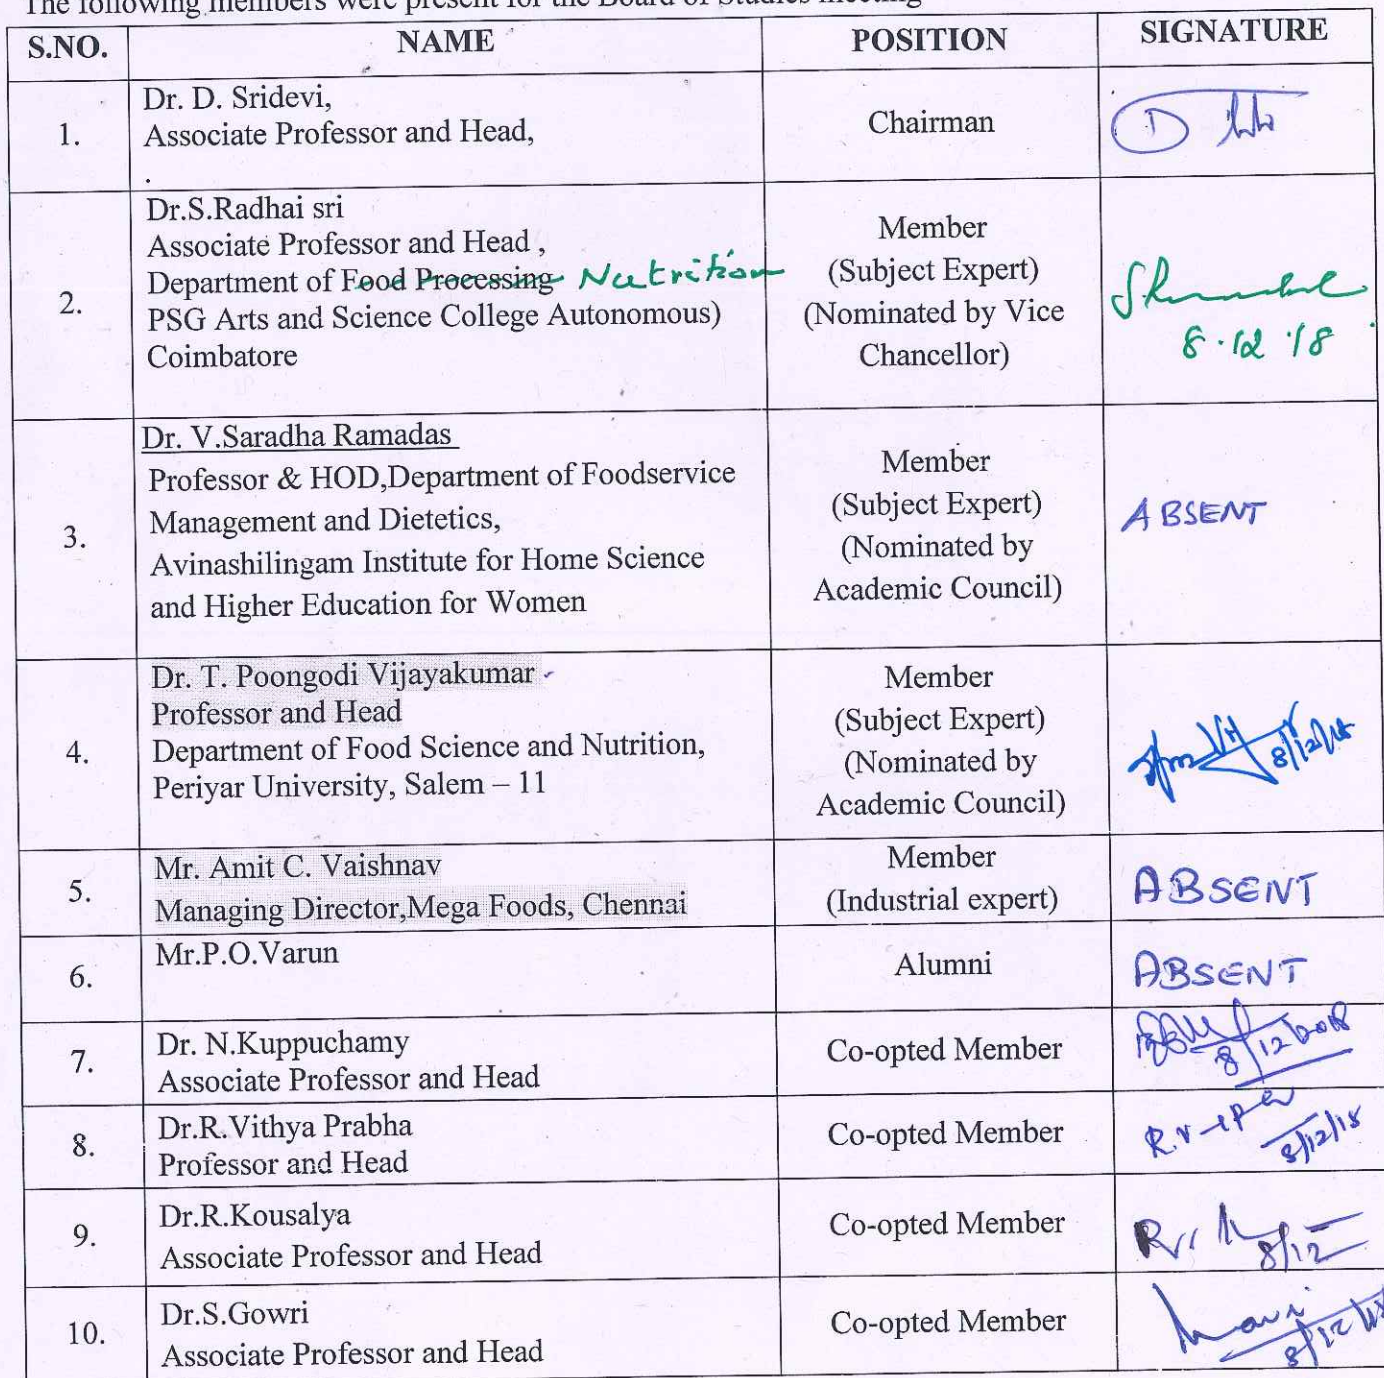 The following members were present for the Board of Studies meeting
S.NO. NAME POSITION SIGNATURE
1.
Dr. D. Sridevi,
Associate Professor and Head,
.
Chairman
D
2.
Dr.S.Radhai sri
Associate Professor and Head ,
Department of Food Processing Nutrition
PSG Arts and Science College Autonomous)
Coimbatore
Member
(Subject Expert)
(Nominated by Vice
Chancellor)
8.12.18
3.
Dr. V.Saradha Ramadas
Professor & HOD,Department of Foodservice
Management and Dietetics,
Avinashilingam Institute for Home Science
and Higher Education for Women
Member
(Subject Expert)
(Nominated by
Academic Council)
ABSENT
4.
Dr. T. Poongodi Vijayakumar
Professor and Head
Department of Food Science and Nutrition,
Periyar University, Salem – 11
Member
(Subject Expert)
(Nominated by
Academic Council)
8/12/18
5.
Mr. Amit C. Vaishnav
Managing Director,Mega Foods, Chennai
Member
(Industrial expert)
ABSENT
6.
Mr.P.O.Varun
Alumni
ABSENT
7.
Dr. N.Kuppuchamy
Associate Professor and Head
Co-opted Member
8/12/2018
8.
Dr.R.Vithya Prabha
Professor and Head
Co-opted Member
8/12/18
9.
Dr.R.Kousalya
Associate Professor and Head
Co-opted Member
8/12
10.
Dr.S.Gowri
Associate Professor and Head
Co-opted Member
8/12/18